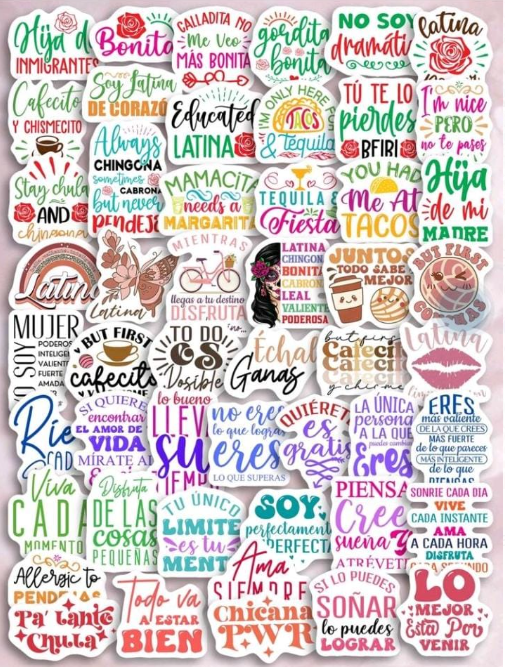 Hija de
INMIGRANTES
Bonita
CALLADITA NO
Me Veo
MÁS BONITA
gordita
bonita
NO SOY
dramáti
latina
Cafecito
Y CHISMECITO
Soy Latina
DE CORAZÓ
Educated
LATINA
I'M ONLY HERE
TACOS
& Tequila
TÚ TE LO
pierdes
BFIRI
I'm nice
PERO
no te pases
Stay chula
AND
chingona
Always
CHINGONA
sometimes
CABRONA
but never
PENDEJ
MAMACIT
needs a
MARGARIT
TEQUILA
Fiesta
YOU HAD
Me At
TACOS
Hija
de mi
MADRE
Latina
Latina
MIENTRAS
llegas a tu destino
DISFRUTA
LATINA
CHINGON
BONITA
CABRON
LEAL
VALIENTE
PODEROSA
JUNTOS
TODO SABE
MEJOR
BUT FIRST
YO SOY
MUJER
PODEROS
INTELIGE
VALIENT
FUERTE
AMADA
BUT FIRST
cafecito
TO DO
es
Posible
Échal
Ganas
but first
Cafecit
Cafecit
Cafecit
Latina
Ríe
CAD
SI QUIERE
encontrar
EL AMOR DE
VIDA
MÍRATE AL
lo bueno
LLEV
SU
no eres
lo que logra
eres
LO QUE SUPERAS
QUIÉRET
es
gratis
LA ÚNICA
persona
A LA QU
Eres
ERES
más valiente
DE LA QUE CREES
MÁS FUERTE
de lo que pareces
MÁS INTELIGENTE
de lo que
PIENSAS
Viva
CADA
MOMENTO
Disfruta
DE LAS
cosas
PEQUEÑAS
TU ÚNICO
LIMITE
es tu
MENT
SOY
perfectament
PERFECT
PIENSA
Cree
sueña
ATRÉVET
SONRIE CADA DIA
VIVE
CADA INSTANTE
AMA
A CADA HORA
DISFRUTA
CADA SEGUNDO
Allergic to
PENDEJ
Pa' tanto
Chulla
Todo va
A ESTAR
BIEN
Ama
SIEMPRE
Chicana
PWR
SI LO PUEDES
SOÑAR
lo puedes
LOGRAR
LO
MEJOR
Esta Por
VENIR